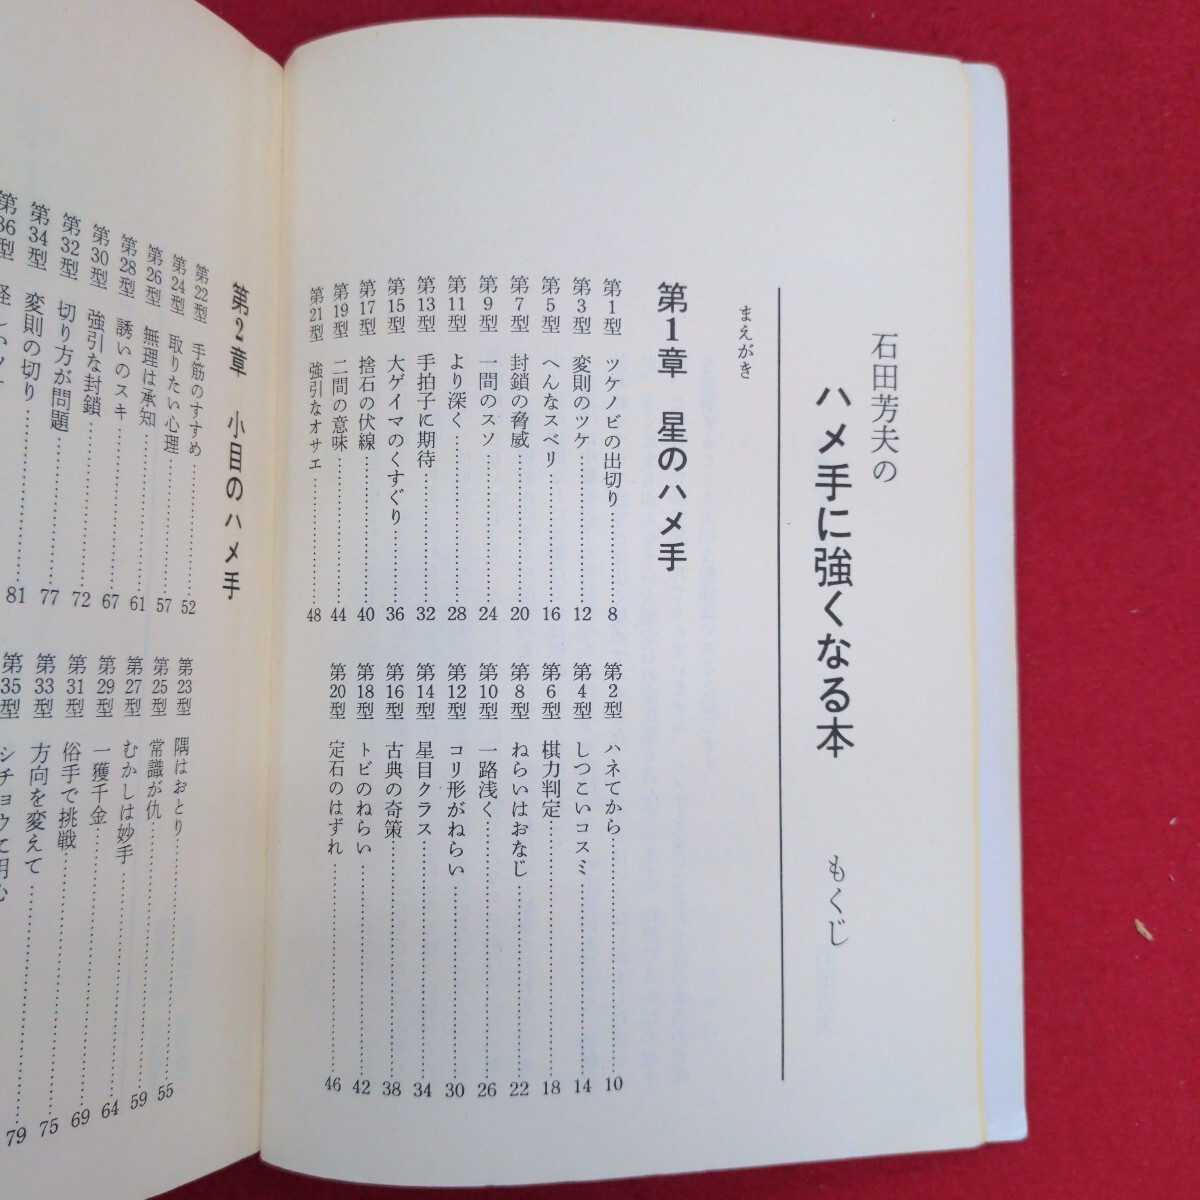 石田芳夫の
ハメ手に強くなる本 もくじ
まえがき
第1章 星のハメ手
第1型 ツケノビの出切り………8
第2型 ハネてから………10
第3型 変則のツケ………12
第4型 しつこいコスミ………14
第5型 へんなスベリ………16
第6型 棋力判定………18
第7型 封鎖の脅威………20
第8型 ねらいはおなじ………22
第9型 一間のスソ………24
第10型 一路浅く………26
第11型 より深く………28
第12型 コリ形がねらい………30
第13型 手拍子に期待………32
第14型 星目クラス………34
第15型 大ゲイマのくすぐり………36
第16型 古典の奇策………38
第17型 捨石の伏線………40
第18型 トビのねらい………42
第19型 二間の意味………44
第20型 定石のはずれ………46
第21型 強引なオサエ………48
第2章 小目のハメ手
第22型 手筋のすすめ………52
第23型 隅はおとり………55
第24型 取りたい心理………57
第25型 常識が仇………59
第26型 無理は承知………61
第27型 むかしは妙手………64
第28型 誘いのスキ………67
第29型 一獲千金………69
第30型 強引な封鎖………72
第31型 俗手で挑戦………75
第32型 切り方が問題………77
第33型 方向を変えて………79
第34型 変則の切り………81
第35型 シチョウで用心
第36型